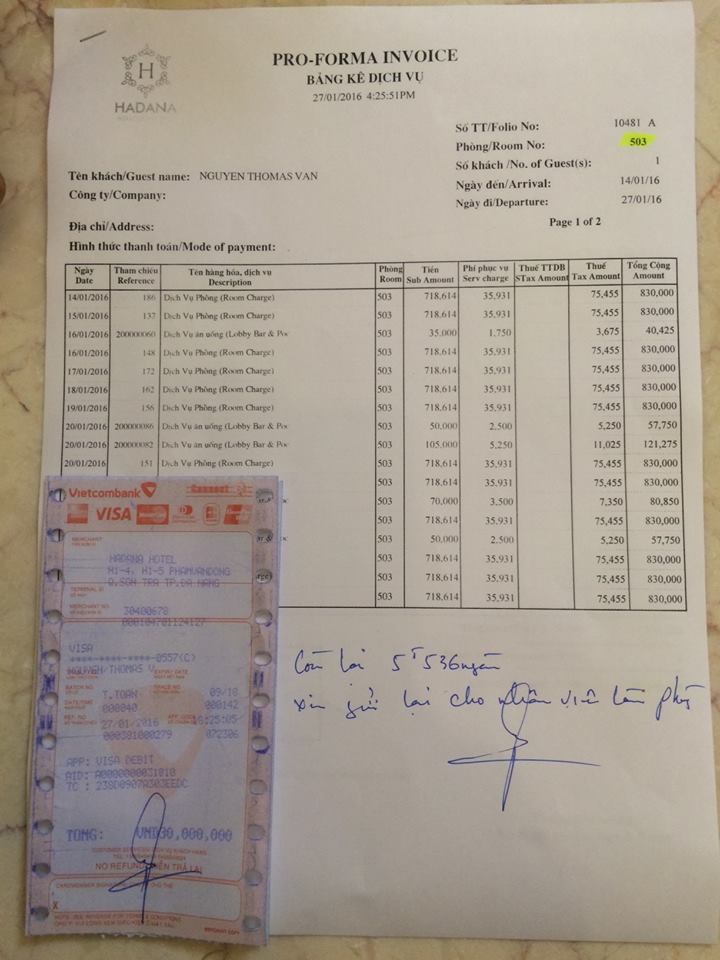 H
HADANA
PRO-FORMA INVOICE
BẢNG KÊ DỊCH VỤ
27/01/2016 4:25:51PM
Số TT/Folio No: 10481 A
Phòng/Room No: 503
Số khách /No. of Guest(s): 1
Ngày đến/Arrival: 14/01/16
Ngày đi/Departure: 27/01/16
Page 1 of 2
Tên khách/Guest name: NGUYEN THOMAS VAN
Công ty/Company:
Địa chỉ/Address:
Hình thức thanh toán/Mode of payment:
Ngày Tham chiếu Tên hàng hóa, dịch vụ Phòng Tiền Phí phục vụ Thuế TTDB Thuế Tổng Cộng
Date Reference Description Room Sub Amount Serv charge STax Amount Tax Amount Amount
14/01/2016 186 Dịch Vụ Phòng (Room Charge) 503 718,614 35,931 75,455 830,000
15/01/2016 137 Dịch Vụ Phòng (Room Charge) 503 718,614 35,931 75,455 830,000
16/01/2016 200000060 Dịch Vụ ăn uống (Lobby Bar & Poc 503 35,000 1,750 3,675 40,425
16/01/2016 148 Dịch Vụ Phòng (Room Charge) 503 718,614 35,931 75,455 830,000
17/01/2016 172 Dịch Vụ Phòng (Room Charge) 503 718,614 35,931 75,455 830,000
18/01/2016 162 Dịch Vụ Phòng (Room Charge) 503 718,614 35,931 75,455 830,000
19/01/2016 156 Dịch Vụ Phòng (Room Charge) 503 718,614 35,931 75,455 830,000
20/01/2016 200000086 Dịch Vụ ăn uống (Lobby Bar & Poc 503 50,000 2,500 5,250 57,750
20/01/2016 200000082 Dịch Vụ ăn uống (Lobby Bar & Poc 503 105,000 5,250 11,025 121,275
20/01/2016 151 Dịch Vụ Phòng (Room Charge) 503 718,614 35,931 75,455 830,000
503 718,614 35,931 75,455 830,000
503 70,000 3,500 7,350 80,850
503 718,614 35,931 75,455 830,000
503 50,000 2,500 5,250 57,750
503 718,614 35,931 75,455 830,000
503 718,614 35,931 75,455 830,000
503 718,614 35,931 75,455 830,000
Vietcombank
VISA
MERCHANT
HADANA HOTEL
H1-4, H1-5 PHAMVANDONG
Q.SON TRA TP.DA NANG
TERMINAL ID
MERCHANT NO 30400678
000104701124127
VISA
0557(C)
NGUYEN/THOMAS V
EXPIRY DATE
BATCH NO T.TOAN TRACE NO 09/18
000040 000142
DATE/TIME 27/01/2016 18:25:05
REF. NO APP. CODE
000381000279 072306
APP: VISA DEBIT
AID: A0000000031010
TC : 238D0907A303EEDC
TONG: VND30,000,000
NO REFUND
X
MERCHANT COPY
Còn lại 5T536 ngàn
xin gửi lại cho nhân viên làm phòng